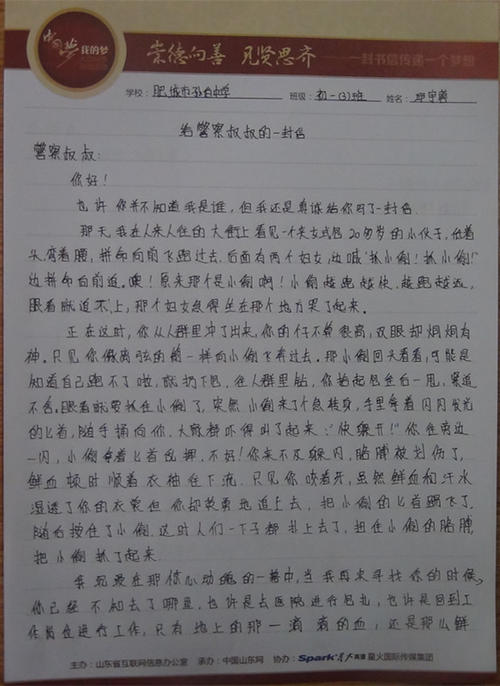 中国梦 我的梦
崇德向善 见贤思齐 一封书信传递一个梦想
学校：肥城市 中学 班级：初一(3)班 姓名：
给警察叔叔的一封信
警察叔叔：
你好！
也许你并不知道我是谁，但我还是真诚给你写了一封信。
那天，我在人来人往的大街上看见一个夹女式包20多岁的小伙子，低着
头，弯着腰，拼命向前飞跑过去，后面有两个妇女，边喊"抓小偷！抓小偷！"
边拼命向前追。噢！原来那个是小偷啊！小偷越跑越快，越跑越远，
眼看就追不上，那个妇女急得坐在那个地方哭了起来。
正在这时，你从人群里冲了出来，你的个不算很高，双眼却炯炯有
神。只见你像离弦的箭一样向小偷飞奔过去。那小偷回头看看，可能是
知道自己跑不了啦，就扔下包，往人群里钻，你拾起包往后一甩，紧追
不舍。眼看就要抓住小偷了，突然小偷来了个急转身，手里拿着闪闪发光
的匕首，随手捅向你，大家都吓得叫了起来："快躲开！"你往旁边
一闪，小偷拿着匕首乱挥，不好！你来不及躲闪，胳膊被划伤了，
鲜血顿时顺着衣袖往下流。只见你咬着牙，虽然鲜血和汗水
湿透了你的衣裳但你却英勇地追上去，把小偷的匕首踢飞了，
随后按住了小偷，这时人们一下子都扑上去了，扭住小偷的胳膊，
把小偷抓了起来。
我沉浸在那惊心动魄的一幕中，当我再来寻找你的时候，
你已经不知去了哪里，也许是去医院进行包扎，也许是回到工
作岗位进行工作，只有地上的那一滴滴的血，还是那么鲜
主办：山东省互联网信息办公室 承办：中国山东网 协办：Spark星火英语 星火国际传媒集团